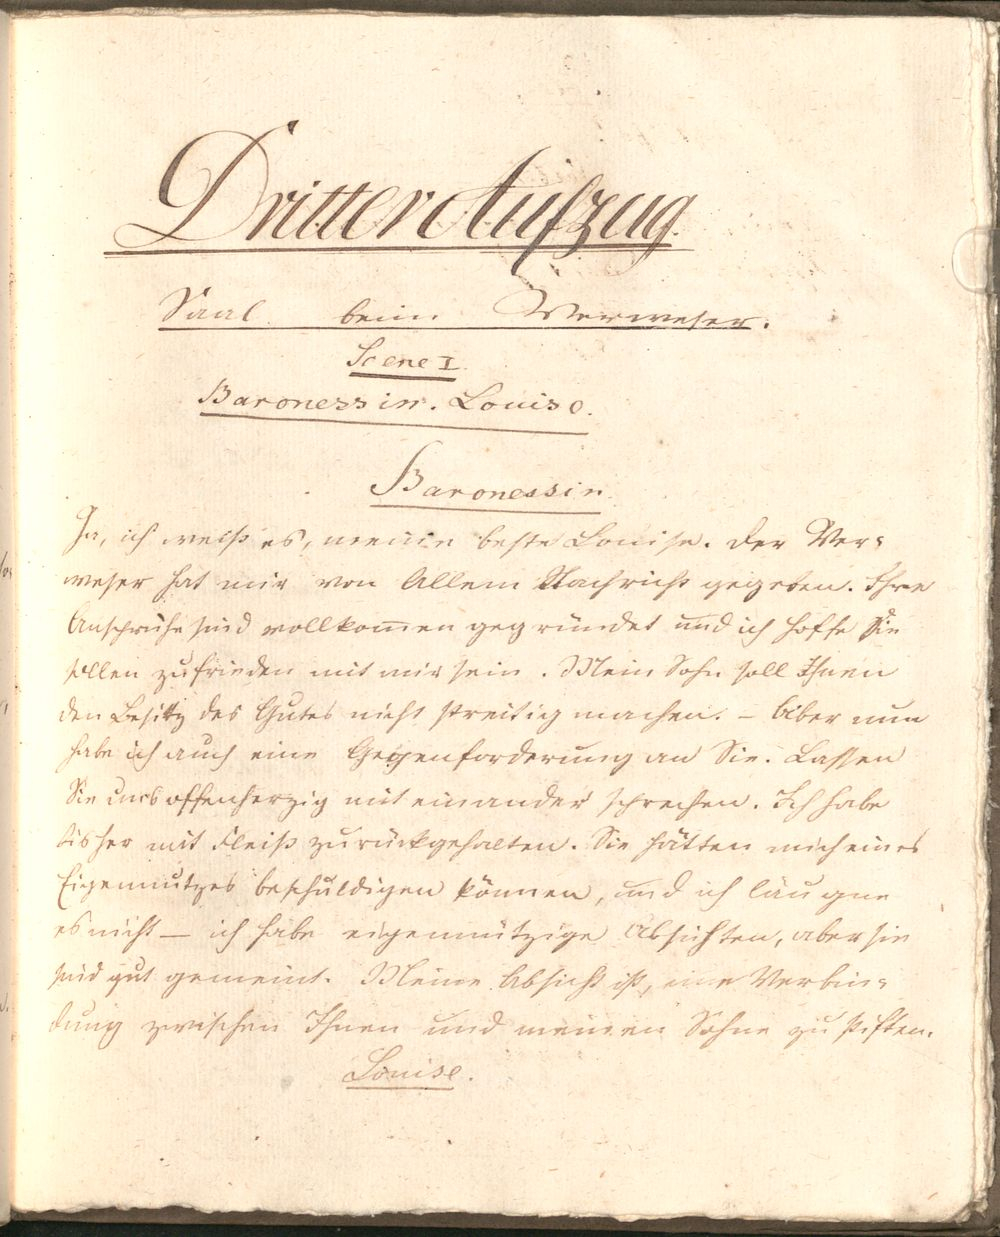 Dritter Aufzug.
Saal beim Verweser.
Scene I.
Baronessin. Louise.
Baronessin.
Ja, ich weiß es, meine beste Louise. Der Ver-
weser hat mir von Allem Nachricht gegeben. Ihre
Ansprüche sind vollkom̅en gegründet und ich hoffe Sie
sollen zufrieden mit mir sein. Mein Sohn soll Ihnen
den Besitz des Gutes nicht streitig machen. – Aber nun
habe ich auch eine Gegenforderung an Sie. Lassen
Sie uns offenherzig mit einander sprechen. Ich habe
bisher mit Fleiß zurückgehalten. Sie hätten mich eines
Eigennutzes beschuldigen können, und ich läugne
es nicht – ich habe eigennützige Absichten, aber sie
sind gut gemeint. Meine Absicht ist, eine Verbin-
dung zwischen Ihnen und meinen Sohne zu stiften.
Louise.